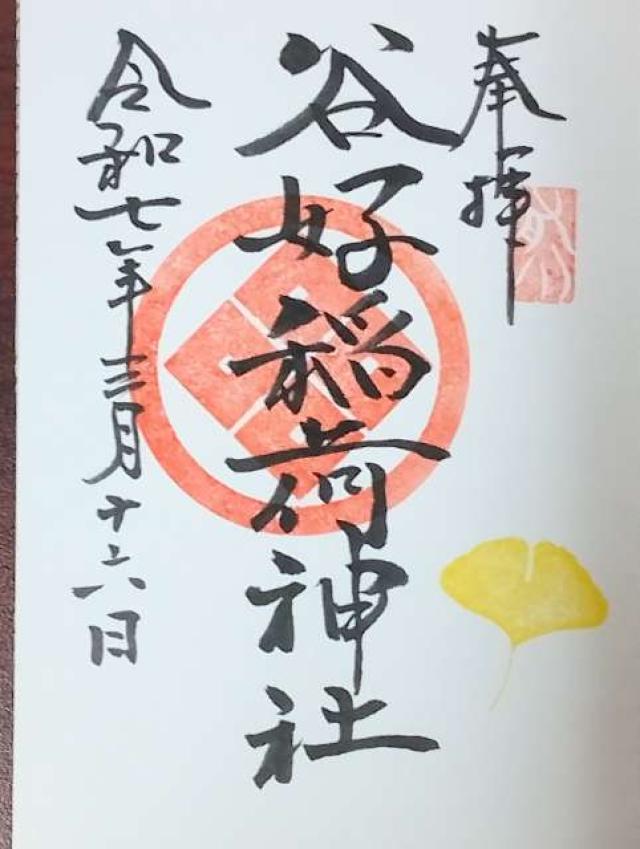 奉拝
谷好稲荷神社
令和七年三月十六日